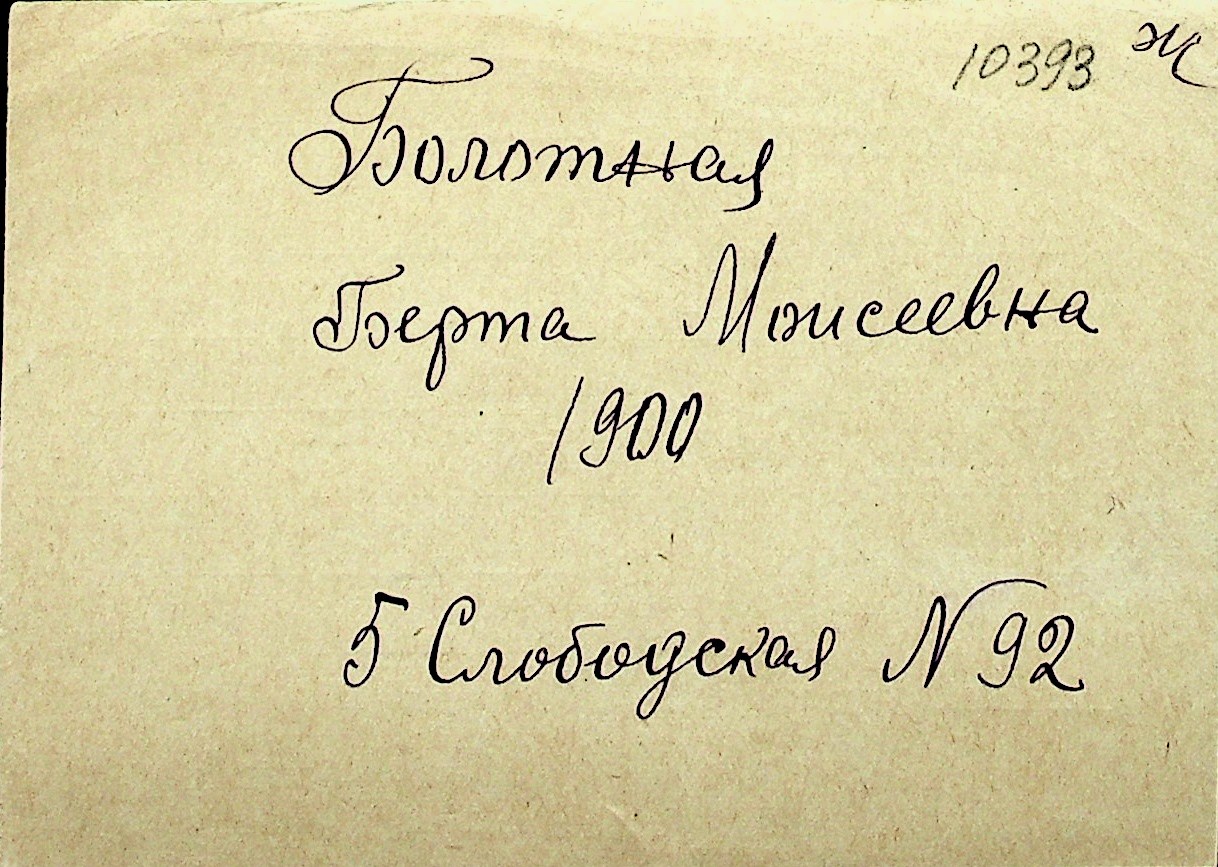 10393 ж
Болотная
Берта Моисеевна
1900
5 Слободская N 92